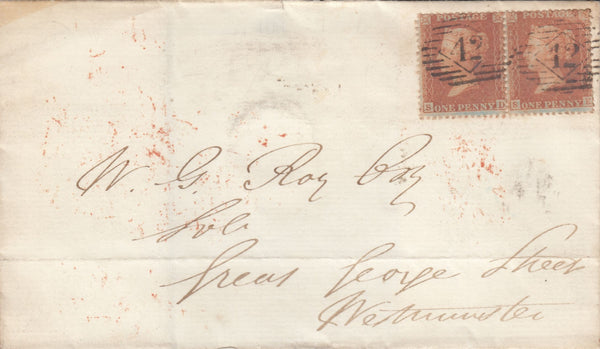 POSTAGE POSTAGE
12 12
S ONE PENNY D S ONE PENNY E
W. G. Roy Esq
Solr
Great George Street
Westminster